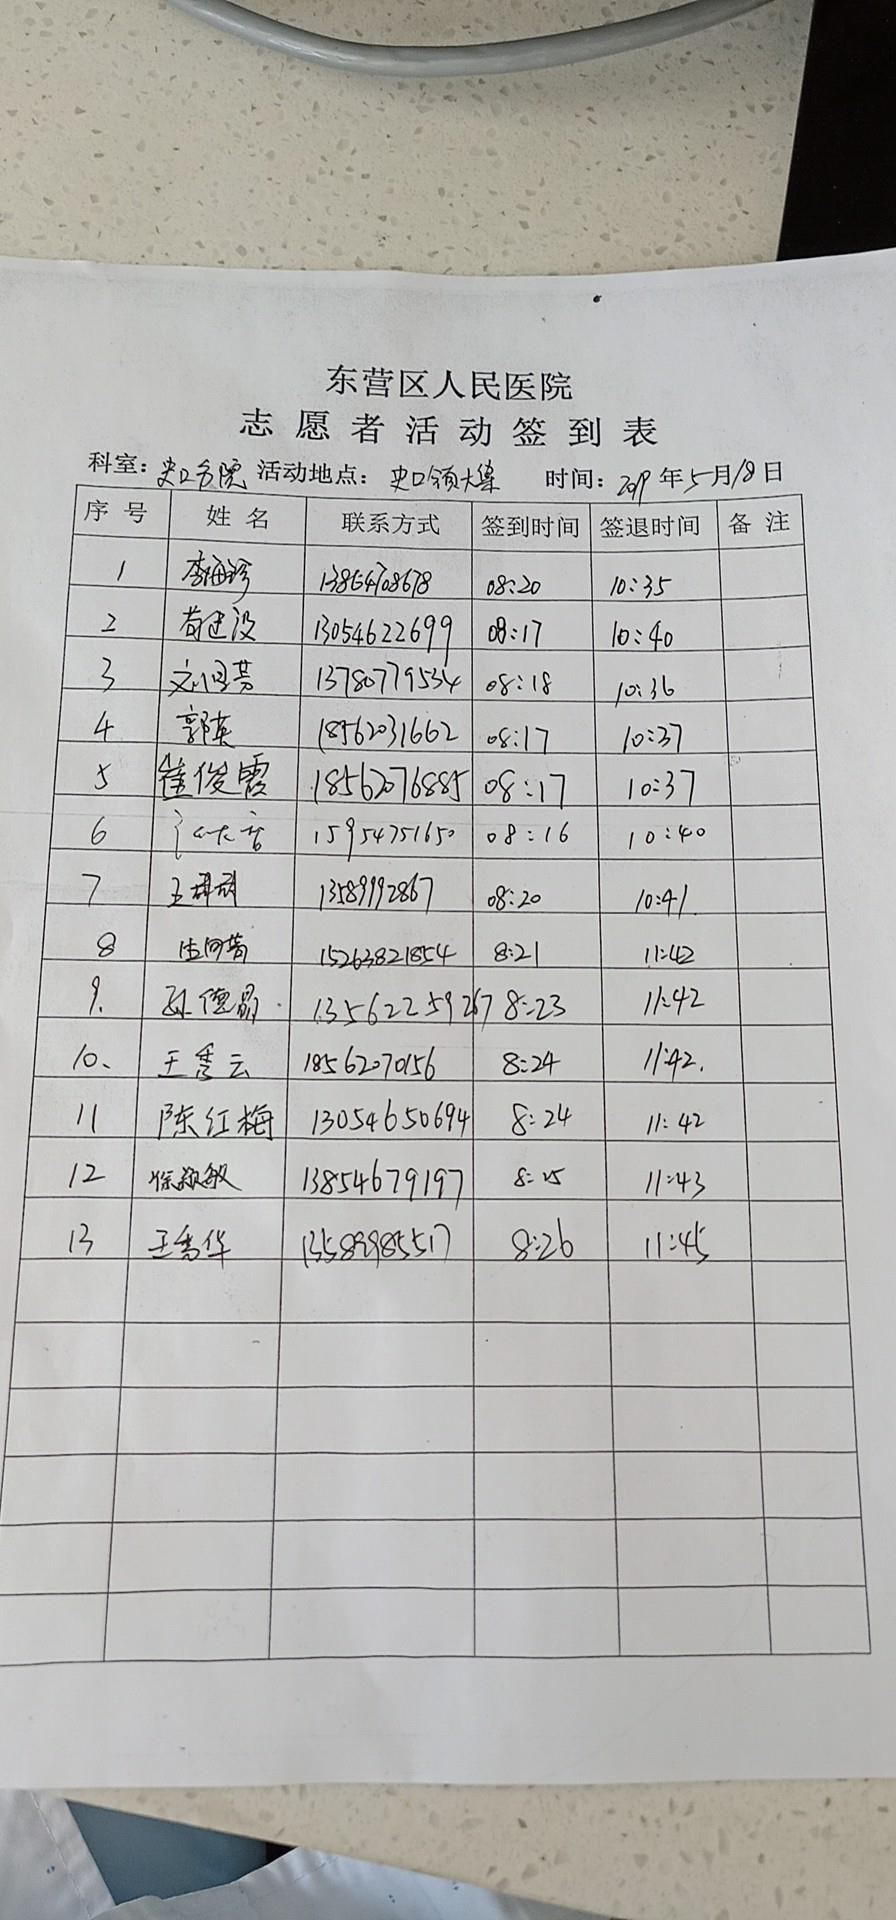 东营区人民医院
志愿者活动签到表
科室：史口分院 活动地点：史口镇大集 时间：2019年5月18日
序号 姓名 联系方式 签到时间 签退时间 备注
1 李海珍 13854708678 08:20 10:35
2 苟建设 13054622699 08:17 10:40
3 13780779534 08:18 10:36
4 郭英 18562031662 08:17 10:37
5 崔俊霞 18562076885 08:17 10:37
6 15954751650 08:16 10:40
7 13589992867 08:20 10:41
8 15263821854 8:21 11:42
9. 孙德晶 13562259267 8:23 11:42
10、 王秀云 18562070156 8:24 11:42.
11 陈红梅 13054650694 8:24 11:42
12 徐敏敏 13854679197 8:25 11:43
13 王秀华 13589985517 8:26 11:45